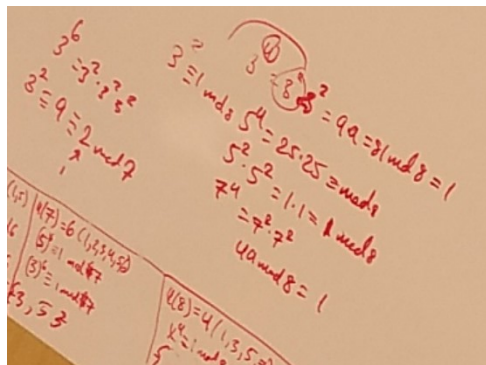 3⁶
=3²·3²·3²
3²=9=2 mod 7
3²=1 mod 8
3⁴=3²·3²=9·9=81 mod 8=1
5⁴=25·25=mod 8
5²·5²=1·1=1 mod 8
7⁴
=7²·7²
49 mod 8=1
φ(7)=6 (1,2,3,4,5,6)
(5)⁶=1 mod 7
(3)⁶=1 mod 7
φ(8)=4 (1,3,5,
x⁴=1 mod 8